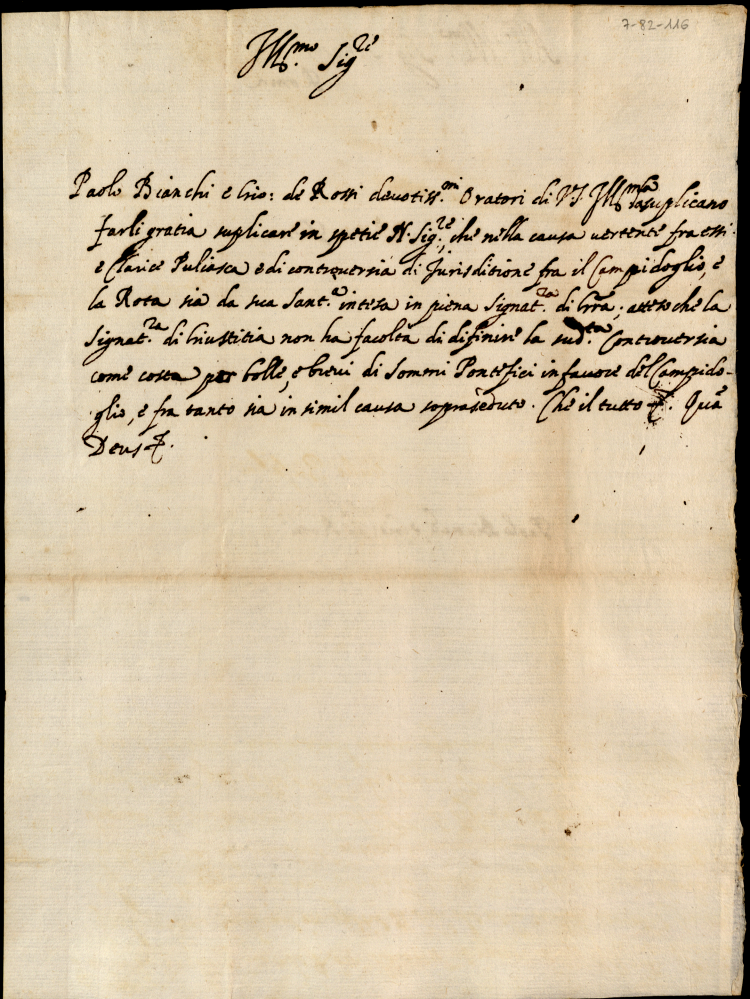 7-82-116
Ill.mo Sig.re
Paolo Bianchi e Gio: de Rossi devotiss.mi Oratori di V.S. Ill.ma la suplicano
farli gratia suplicare in spetie N. Sig.re, che nella causa vertente fra essi
e Clarice Puliasca e di controversia di Jurisditione fra il Campidoglio, e
la Rota sia da sua Sant.a intesa in piena Signat.ra di Gra; atteso che la
Signat.ra di Giustitia non ha facoltà di difinire la sud.ta Controversia
come costa per bolle, e brevi di Somni Pontefici in favore del Campido-
glio, e fra tanto sia in simil causa sopraseduto. Che il tutto &. Quã
Deus &.